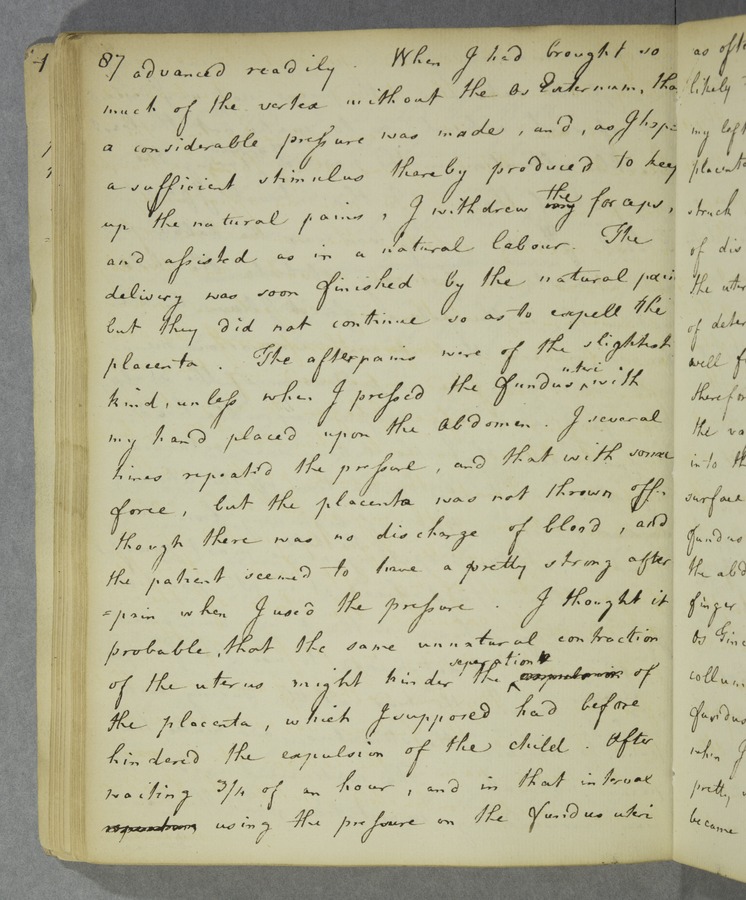 87 advanced readily. When I had brought so
much of the vertex without the Os Externum, tha
a considerable pressure was made, and, as I hop=
a sufficient stimulus thereby produced to keep
up the natural pains, I withdrew the forceps,
and assisted as in a natural labour. The
delivery was soon finished by the natural pain
but they did not continue so as to expell the
placenta. The afterpains were of the slightest
kind, unless when I pressed the fundus uteri with
my hand placed upon the Abdomen. I several
times repeated the pressure, and that with some
force, but the placenta was not thrown off.
though there was no discharge of blood, and
the patient seemed to have a pretty strong after
=pain when I used the pressure. I thought it
probable, that the same unnatural contraction
of the uterus might hinder the separation of
the placenta, which I supposed had before
hindered the expulsion of the child. After
waiting 3/4 of an hour, and in that interval
using the pressure on the fundus uteri
as ofte
likely
my left
placenta
struck
of dis
the uter
of deter
well f
therefor
the va
into th
surface
fundus
the abd
finger
Os Tinc
collum
fundus
when I
pretty
became